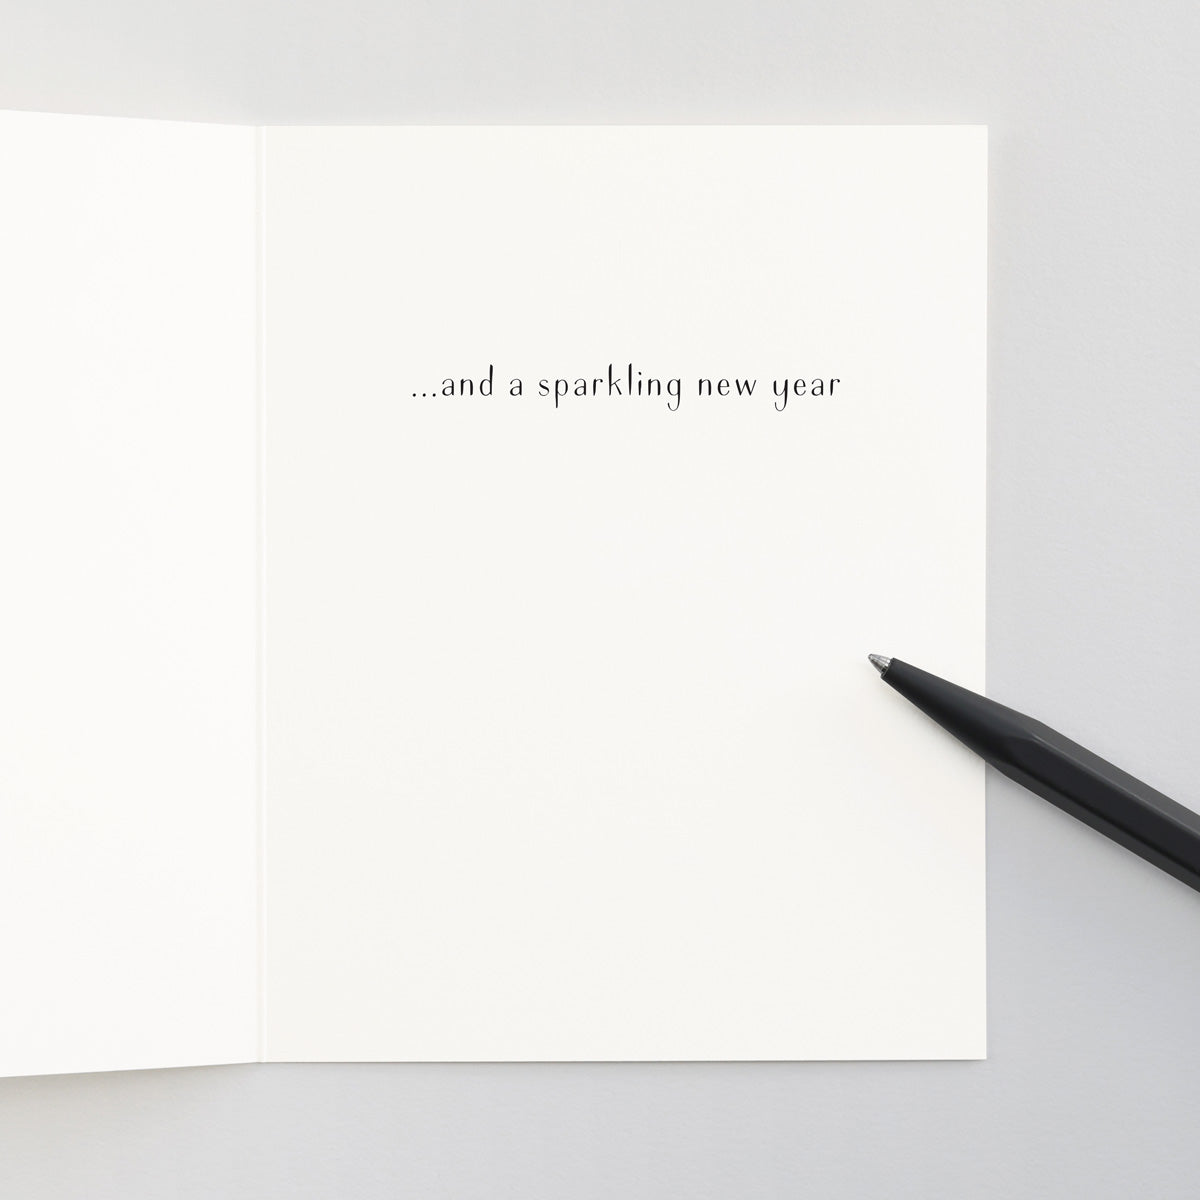 ...and a sparkling new year